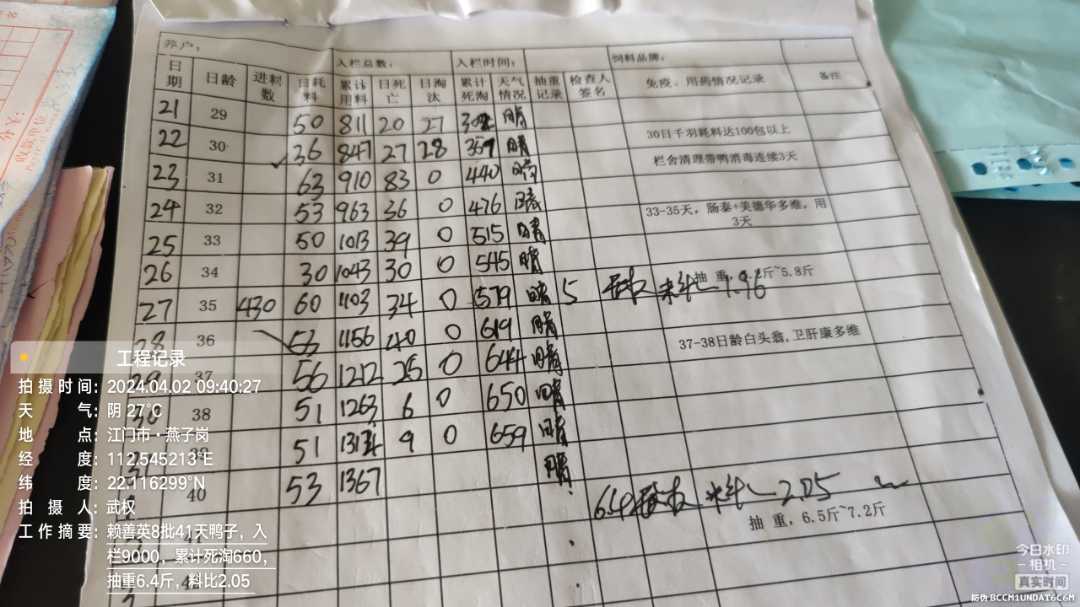 养户：
入栏总数：
入栏时间：
饲料品牌：
日期 日龄 进料数 日耗料 累计用料 日死亡 日淘汰 累计死淘 天气情况 抽重记录 检查人签名 免疫、用药情况记录 备注
21 29 50 811 20 27 晴
22 30 36 847 27 28 359 晴 30日千羽耗料达100包以上
23 31 63 910 83 0 440 晴 栏舍清理带鸭消毒连续3天
24 32 53 963 36 0 476 晴 33-35天，肠泰+美德华多维，用3天
25 33 50 1013 39 0 515 晴
26 34 30 1043 30 0 545 晴 抽 重 斤~5.8斤
27 35 430 60 1103 34 0 579 晴 5 料 1.96
28 36 53 1156 40 0 619 晴 37-38日龄白头翁,卫肝康多维
37 56 1212 25 0 644 晴
38 51 1263 6 0 650 晴
39 51 1314 9 0 659 晴
40 53 1367 晴
6.4 料 2.05
抽 重，6.5斤~7.2斤
工程记录
拍摄时间：2024.04.02 09:40:27
天气：阴 27℃
地点：江门市·燕子岗
经度：112.545213°E
纬度：22.116299°N
拍摄人：武权
工作摘要：赖善英8批41天鸭子，入
栏9000，累计死淘660，
抽重6.4斤，料比2.05
今日水印
-相机-
真实时间
防伪 BCCM1UNDAT6C6M